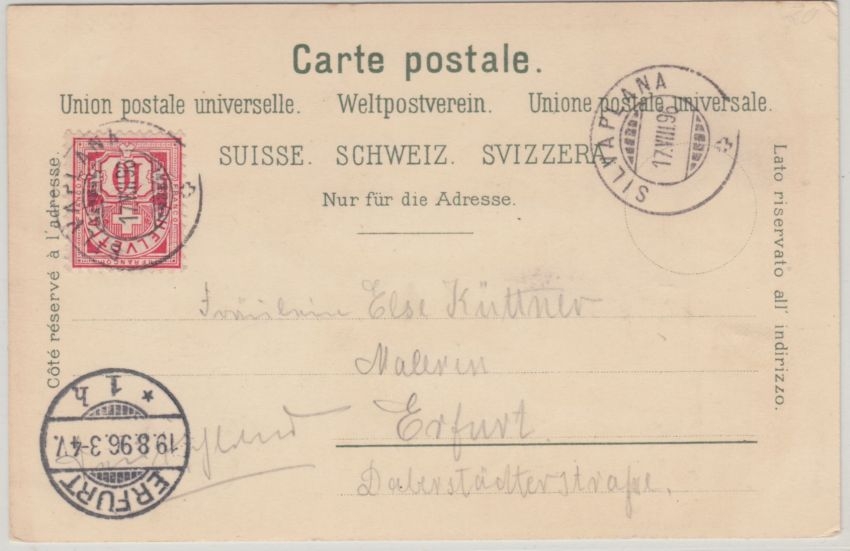 Carte postale.
Union postale universelle. Weltpostverein. Unione postale universale.
SUISSE. SCHWEIZ. SVIZZERA
Nur für die Adresse.
Côté réservé à l'adresse.
Lato riservato all' indirizzo.
SILVAPLANA
17.VIII.96
SILVAPLANA
17.VIII.96
10
HELVETIA
FRANCO
Fräulein Else Küttner
Malerin
Erfurt.
Daberstädterstraße.
Deutschland
ERFURT
19.8.96.3-4V.
* 1 h